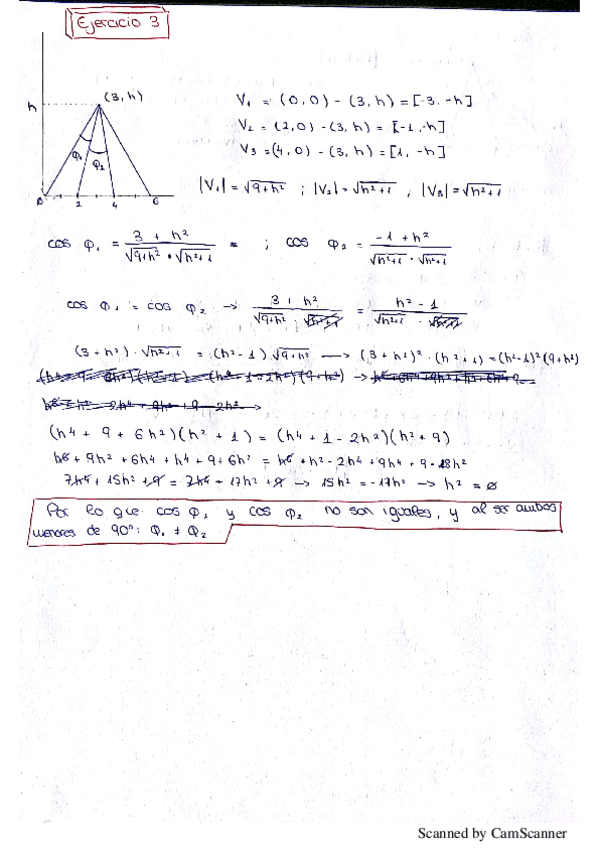 Ejercicio 3
(3, h)
h
φ₁
φ₂
0 2 4 6
V₁ = (0,0) - (3, h) = [-3, -h]
V₂ = (2,0) - (3, h) = [-1, -h]
V₃ = (4,0) - (3, h) = [1, -h]
|V₁| = √9+h² ; |V₂| = √h²+1 ; |V₃| = √h²+1
cos φ₁ = 3 + h² / √9+h² · √h²+1 = ; cos φ₂ = -1 + h² / √h²+1 · √h²+1
cos φ₁ = cos φ₂ → 3 + h² / √9+h² · √h²+1 = h² - 1 / √h²+1 · √h²+1
(3 + h²) · √h²+1 = (h² - 1) √9+h² → (3 + h²)² · (h² + 1) = (h² - 1)² (9 + h²)
(h4 + 9 + 6h²)(h² + 1) = (h4 + 1 - 2h²)(h² + 9)
h6 + 9h² + 6h4 + h4 + 9 + 6h² = h6 + h² - 2h4 + 9h4 + 9 - 18h²
7h4 + 15h² + 9 = 7h4 - 17h² + 9 → 15h² = -17h² → h² = ø
Por lo que cos φ₁ y cos φ₂ no son iguales, y al ser ambos
menores de 90°: φ₁ ≠ φ₂
Scanned by CamScanner